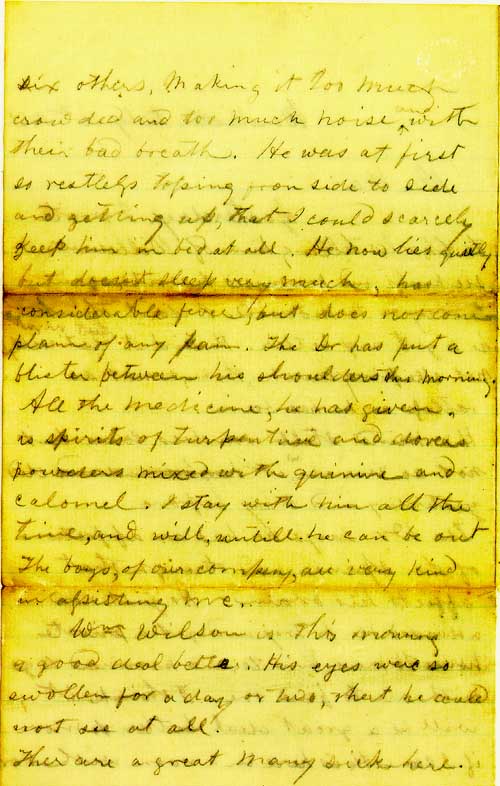 six others, making it too much
crowded and too much noise and with
their bad breath. He was at first
so restless tosing from side to side
and getting up, that I could scarcely
keep him in bed at all. He now lies quietly
but doesnt sleep very much, has
considerable fever, but does not com
plain of any pain. The Dr has put a
blister between his shoulders this morning.
All the medicine, he has given,
is spirits of turpentine and dovers
powders mixed with quinine and
calomel. I stay with him all the
time, and will, untill he can be out
The boys, of our company, are very kind
in assisting me.
Wm Wilson is this morning
a good deal better. His eyes were so
swollen for a day or two, that he could
not see at all.
Ther are a great many sick here.